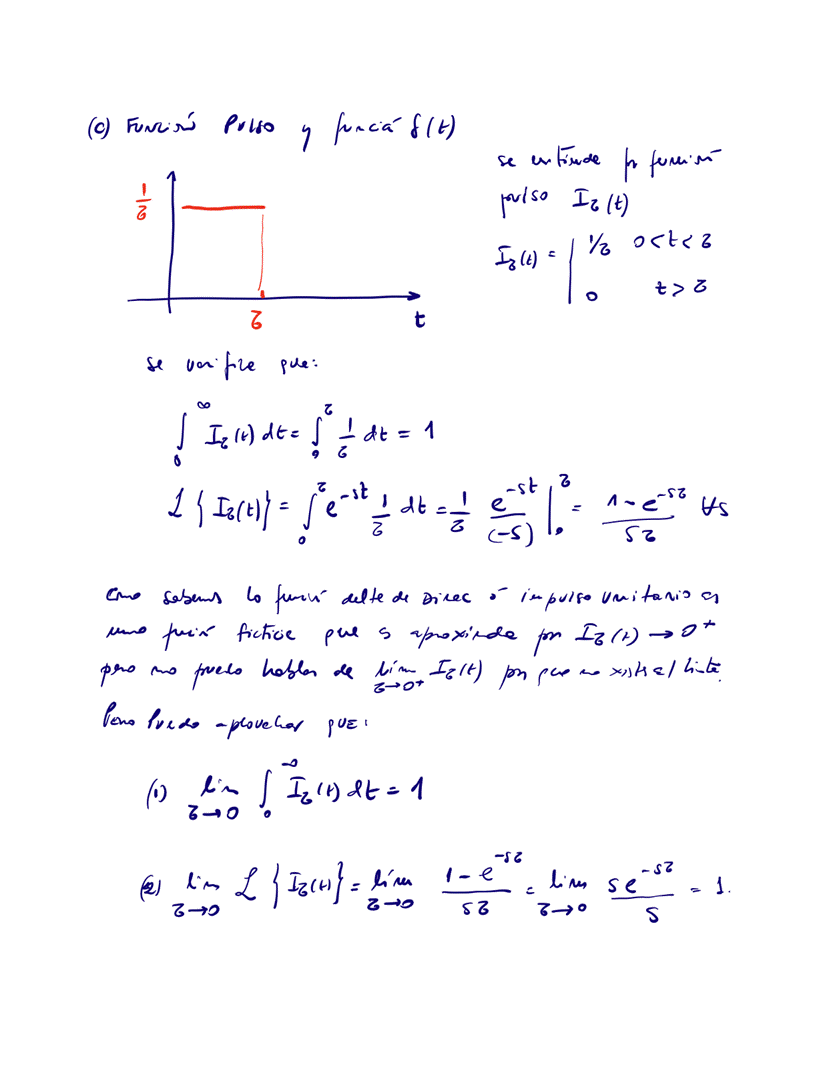 (c) Función Pulso y función δ(t)
se entiende por función
pulso I_τ(t)
I_τ(t) = | 1/τ 0<t<τ
0 t>τ
1/τ
τ t
se verifica que:
∫_0^∞ I_τ(t) dt = ∫_0^τ 1/τ dt = 1
ℒ{I_τ(t)} = ∫_0^τ e^{-st} 1/τ dt = 1/τ e^{-st}/(-s) |_0^τ = (1-e^{-sτ})/(sτ) ∀s
Como sabemos la función delta de Dirac ó impulso unitario es
una función ficticia que es aproximada por I_τ(t) → 0⁺
pero no puedo hablar de lím_{τ→0⁺} I_τ(t) por que no existe el límite.
Pero Puedo aprovechar que:
(1) lím_{τ→0} ∫_0^∞ I_τ(t) dt = 1
(2) lím_{τ→0} ℒ{I_τ(t)} = lím_{τ→0} (1-e^{-sτ})/(sτ) = lím_{τ→0} (s e^{-sτ})/s = 1.